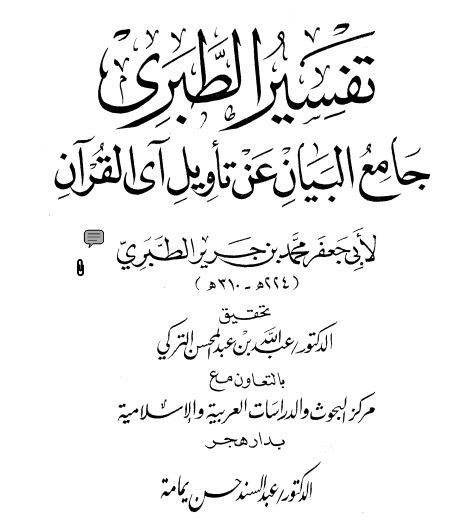 تفسير الطبرى
جامع البيان عن تأويل آى القرآن
لأبى جعفر محمد بن جرير الطبرى
(٢٢٤هـ - ٣١٠هـ)
تحقيق
الدكتور/عبد الله بن عبد المحسن التركي
بالتعاون مع
مركز البحوث والدراسات العربية والإسلامية
بدار هجر
الدكتور/عبد السند حسن يمامة